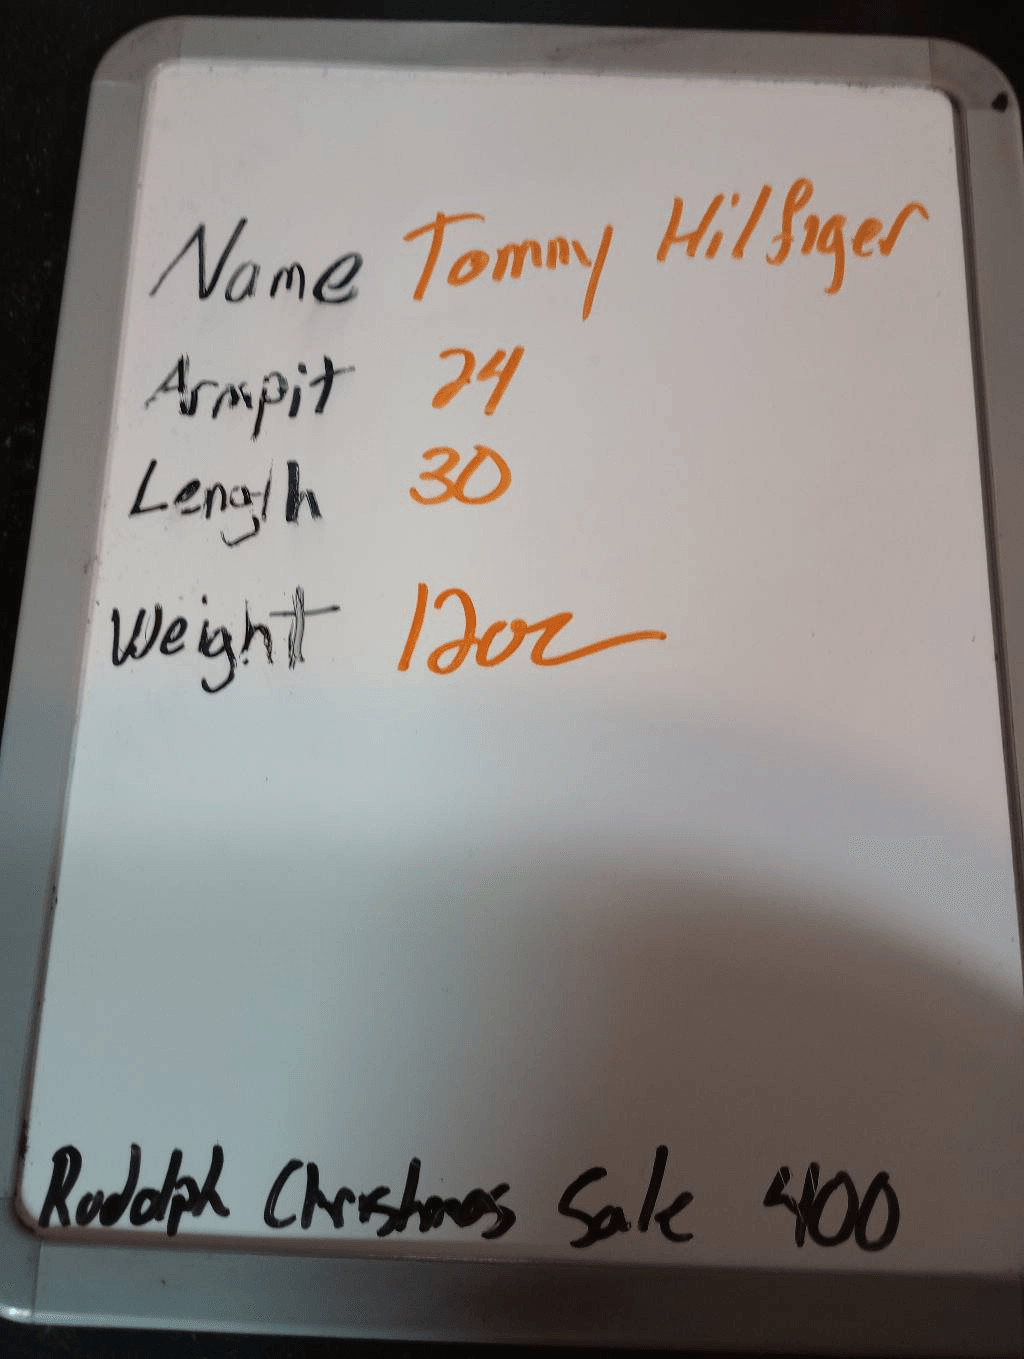 Name Tommy Hilfiger
Armpit 24
Length 30
Weight 12oz
Rudolph Christmas Sale 400